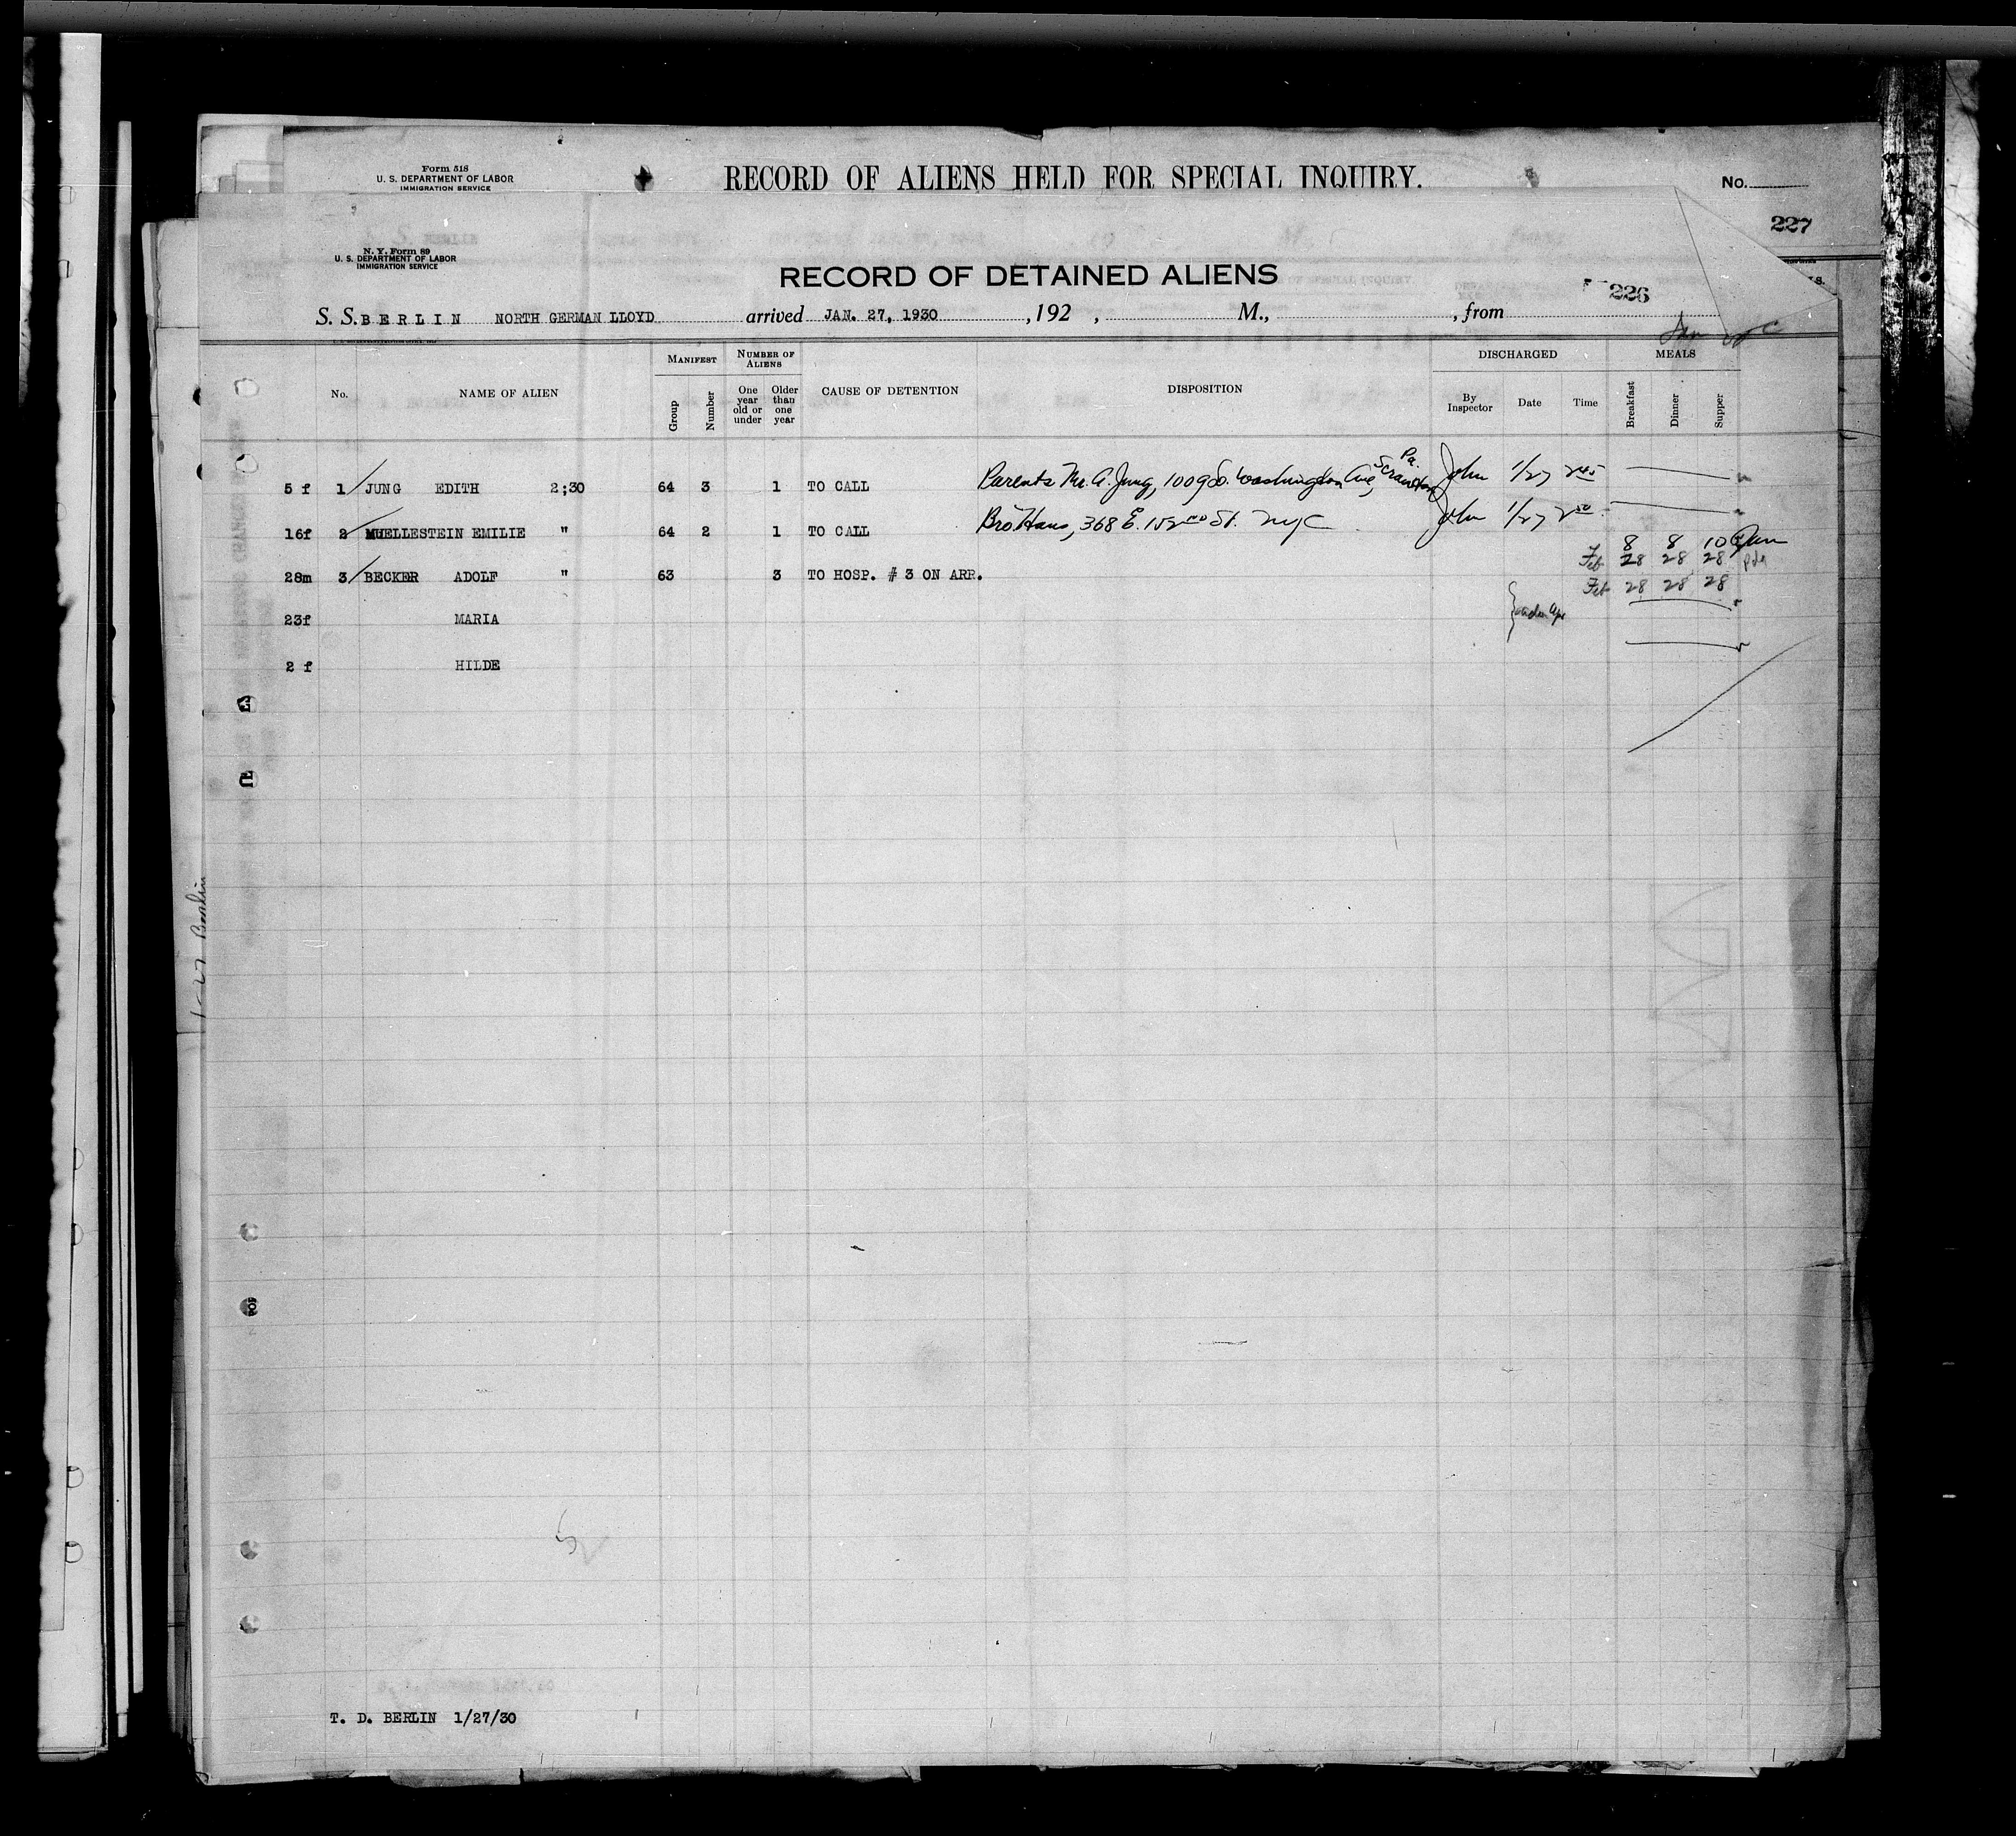 Form 518
U. S. DEPARTMENT OF LABOR
IMMIGRATION SERVICE
RECORD OF ALIENS HELD FOR SPECIAL INQUIRY.
No.
227
N. Y. Form 89
U. S. DEPARTMENT OF LABOR
IMMIGRATION SERVICE
RECORD OF DETAINED ALIENS
226
S. S. BERLIN NORTH GERMAN LLOYD arrived JAN. 27, 1930, 192 , M., , from
No. NAME OF ALIEN MANIFEST Group Number NUMBER OF ALIENS One year old or under Older than one year CAUSE OF DETENTION DISPOSITION DISCHARGED By Inspector Date Time MEALS Breakfast Dinner Supper
5 f 1 JUNG EDITH 2;30 64 3 1 TO CALL Parents Mr. A. Jung, 1009 So. Washington Ave, Scranton Pa. John 1/27 2 45
16f 2 MUELLESTEIN EMILIE " 64 2 1 TO CALL Bro Hans, 368 E. 152nd St. NYC John 1/27 2 50
8 8 10 Jan
Feb 28 28 28
28m 3 BECKER ADOLF " 63 3 TO HOSP. # 3 ON ARR.
Feb 28 28 28
23f MARIA
2 f HILDE
1-27 Berlin
T. D. BERLIN 1/27/30